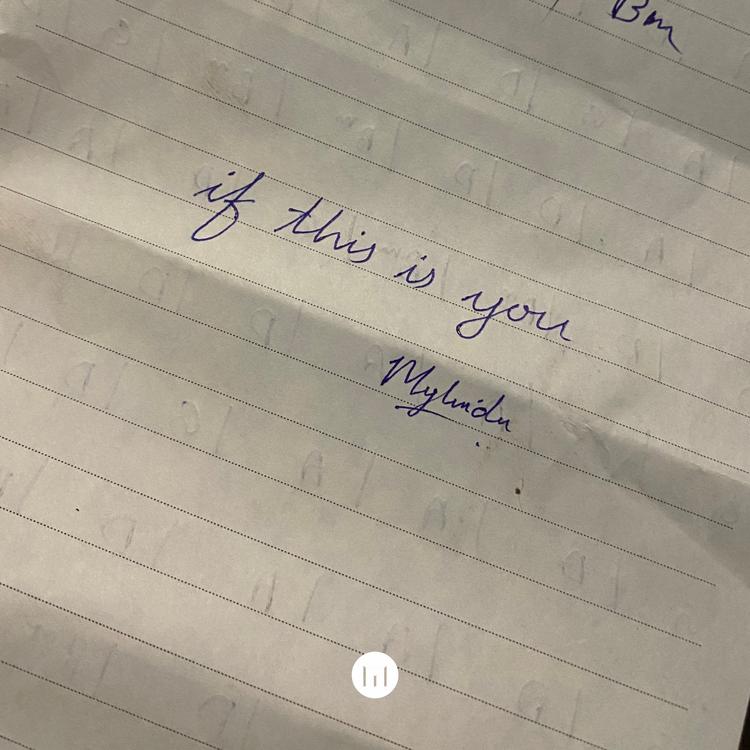 Bm
if this is you
Mylindu